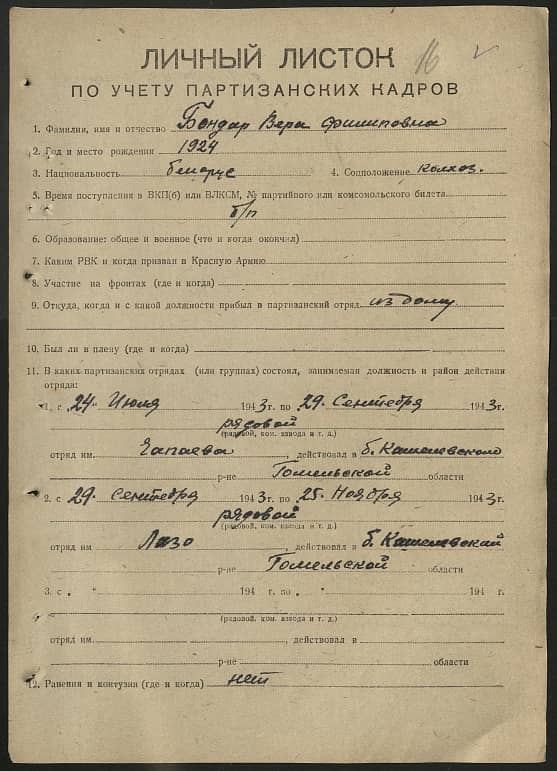 ЛИЧНЫЙ ЛИСТОК 16
ПО УЧЕТУ ПАРТИЗАНСКИХ КАДРОВ
1. Фамилия, имя и отчество Бондар Вера Филиповна
2. Год и место рождения 1924
3. Национальность белорус 4. Соцположение колхоз.
5. Время поступления в ВКП(б) или ВЛКСМ, № партийного или комсомольского билета
б/п
6. Образование: общее и военное (что и когда окончил)
7. Каким РВК и когда призван в Красную Армию
8. Участие на фронтах (где и когда)
9. Откуда, когда и с какой должности прибыл в партизанский отряд из дому
10. Был ли в плену (где и когда)
11. В каких партизанских отрядах (или группах) состоял, занимаемая должность и район действия
отряда:
1. с 24 Июля 1943 г. по 29 Сентебря 1943 г.
рядовой
(рядовой, ком. взвода и т. д.)
отряд им. Чапаева, действовал в б. Кашелевском
р-не Гомельской области
2. с 29. Сентебря 1943 г. по 25. Ноября 1943 г.
рядовой
(рядовой, ком. взвода и т. д.)
отряд им Лазо, действовал в б. Кашелевский
р-не Гомельской области
3. с " " 194 г. по " " 194 г.
(рядовой, ком. взвода и т. д.)
отряд им., действовал и
р-не области
12. Ранения и контузии (где и когда) нет